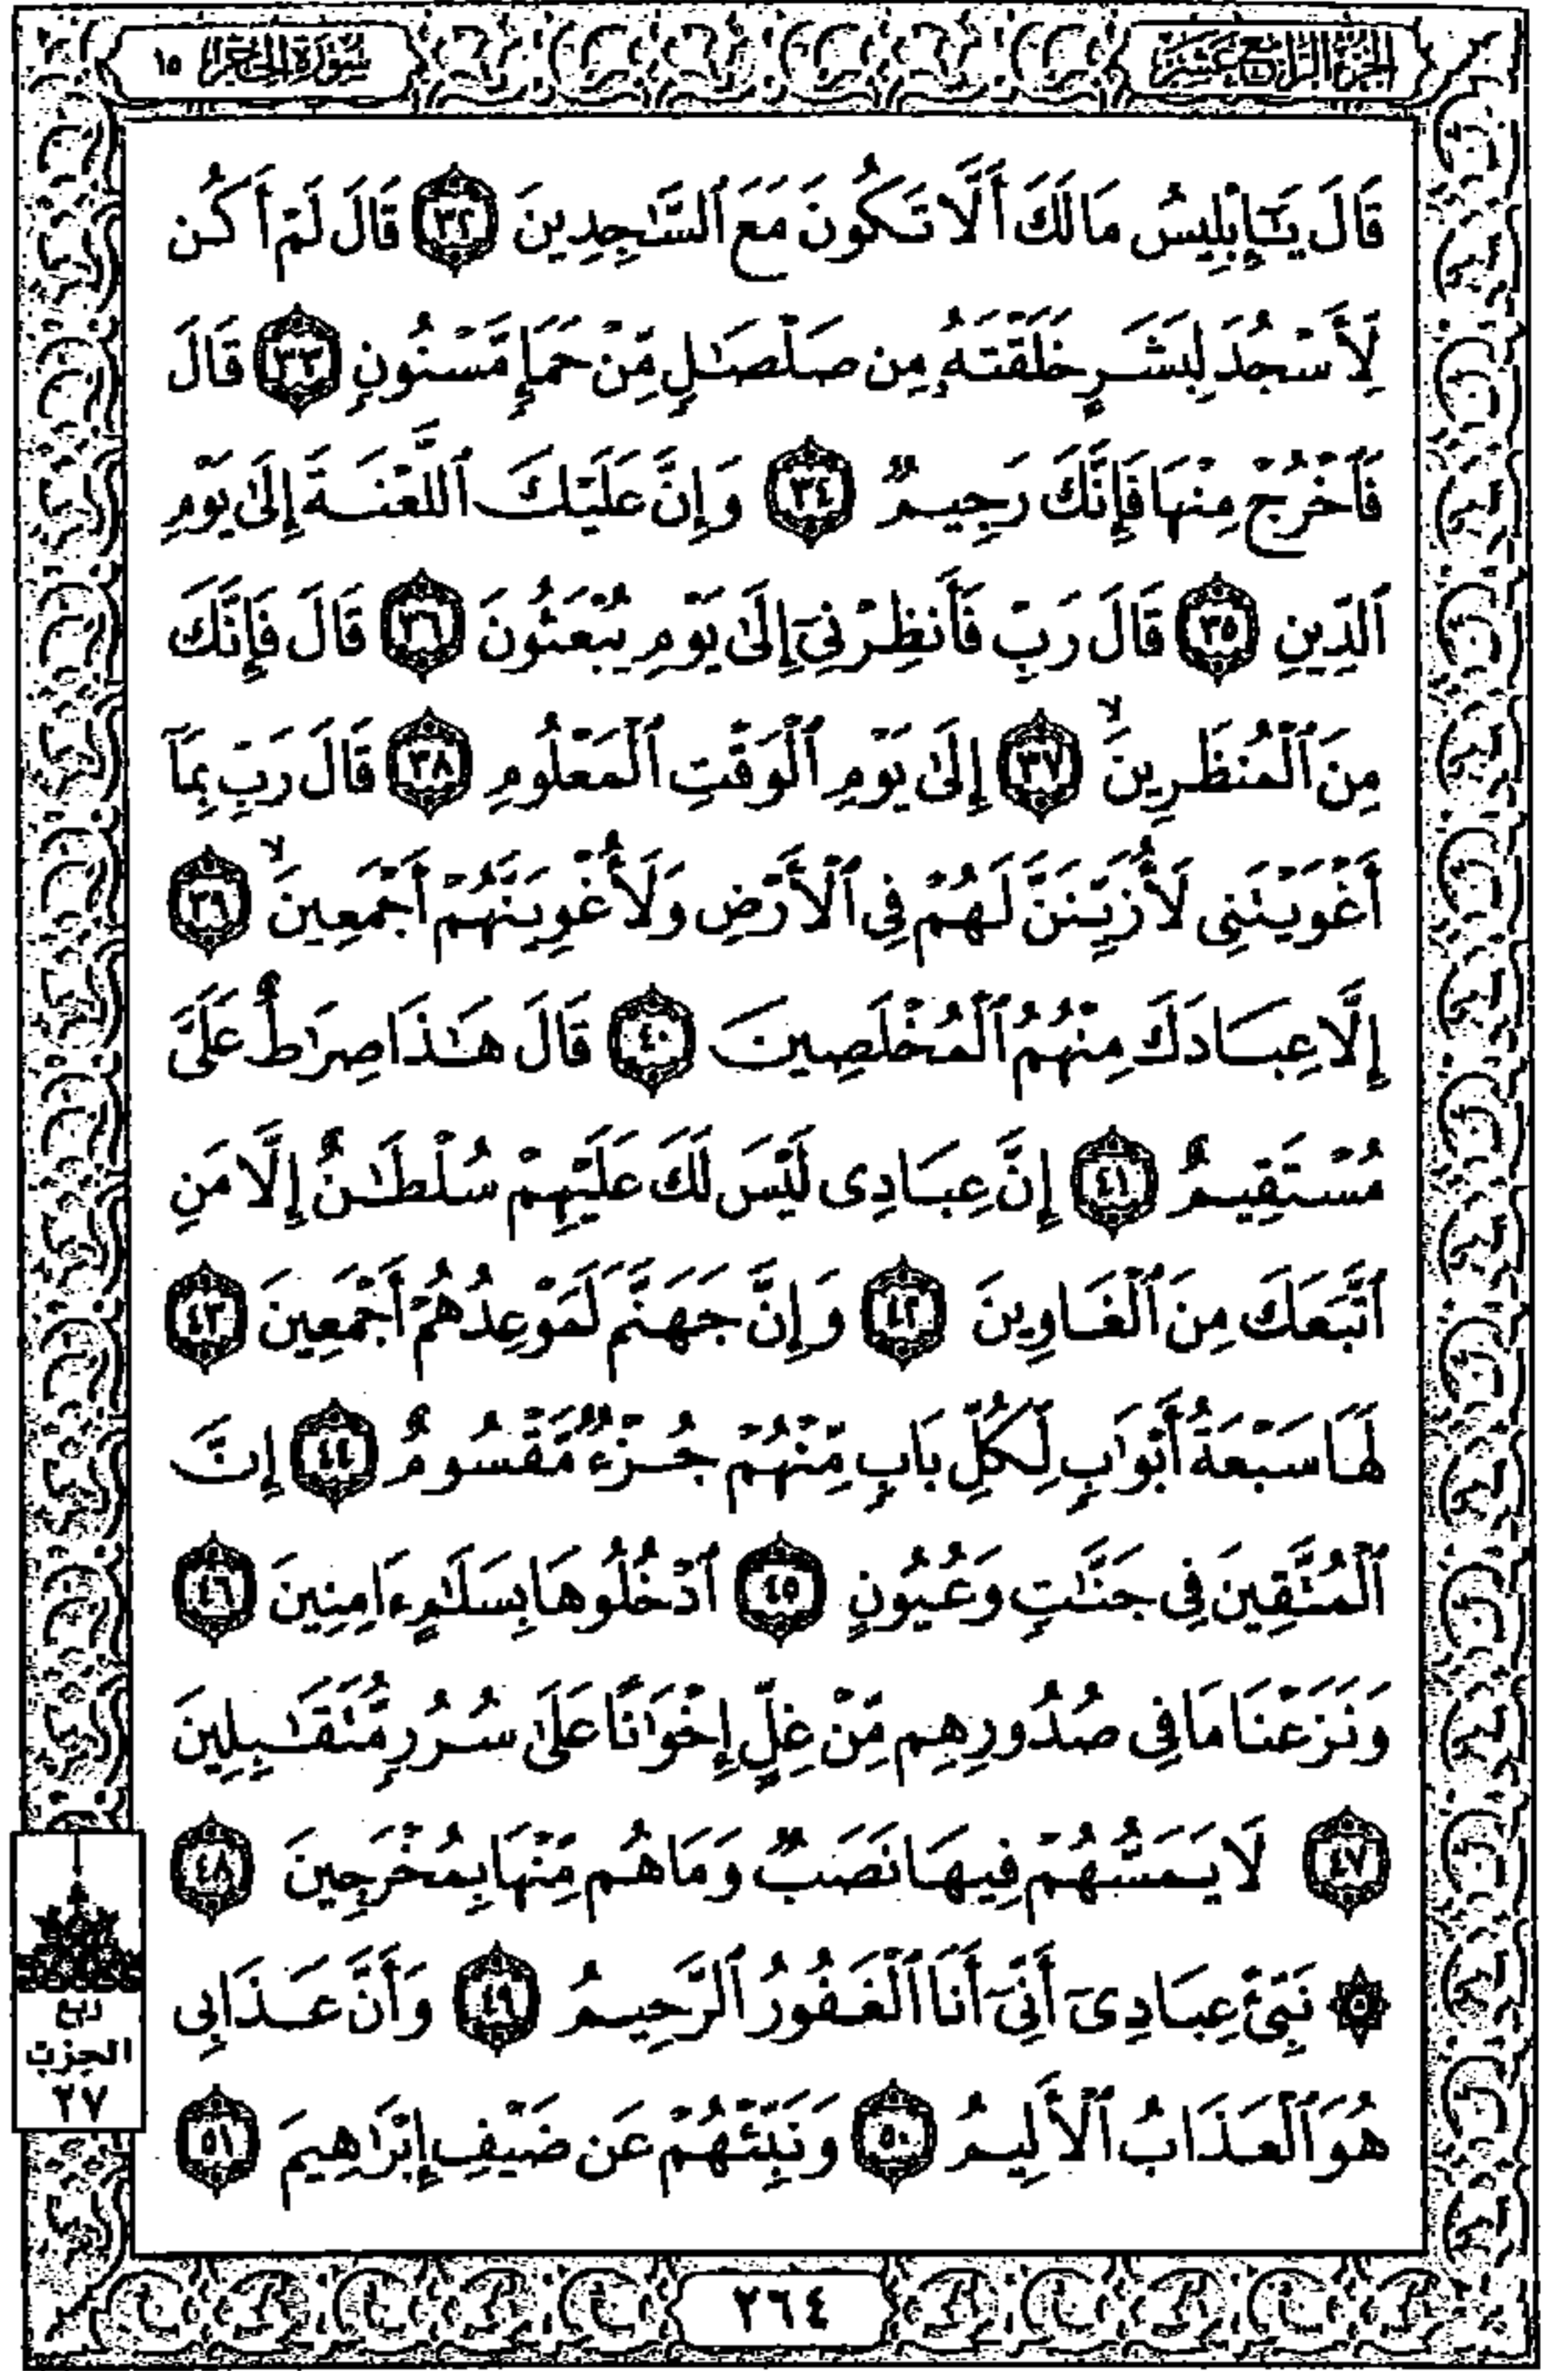 الجزء الرابع عشر
سورة الحجر ١٥
قَالَ يَـٰٓإِبْلِيسُ مَا لَكَ أَلَّا تَكُونَ مَعَ ٱلسَّـٰجِدِينَ ٣٢ قَالَ لَمْ أَكُن
لِّأَسْجُدَ لِبَشَرٍ خَلَقْتَهُۥ مِن صَلْصَـٰلٍ مِّنْ حَمَإٍ مَّسْنُونٍ ٣٣ قَالَ
فَٱخْرُجْ مِنْهَا فَإِنَّكَ رَجِيمٌ ٣٤ وَإِنَّ عَلَيْكَ ٱللَّعْنَةَ إِلَىٰ يَوْمِ
ٱلدِّينِ ٣٥ قَالَ رَبِّ فَأَنظِرْنِىٓ إِلَىٰ يَوْمِ يُبْعَثُونَ ٣٦ قَالَ فَإِنَّكَ
مِنَ ٱلْمُنظَرِينَ ۙ ٣٧ إِلَىٰ يَوْمِ ٱلْوَقْتِ ٱلْمَعْلُومِ ٣٨ قَالَ رَبِّ بِمَآ
أَغْوَيْتَنِى لَأُزَيِّنَنَّ لَهُمْ فِى ٱلْأَرْضِ وَلَأُغْوِيَنَّهُمْ أَجْمَعِينَ ۙ ٣٩
إِلَّا عِبَادَكَ مِنْهُمُ ٱلْمُخْلَصِينَ ٤٠ قَالَ هَـٰذَا صِرَٰطٌ عَلَىَّ
مُسْتَقِيمٌ ٤١ إِنَّ عِبَادِى لَيْسَ لَكَ عَلَيْهِمْ سُلْطَـٰنٌ إِلَّا مَنِ
ٱتَّبَعَكَ مِنَ ٱلْغَاوِينَ ٤٢ وَإِنَّ جَهَنَّمَ لَمَوْعِدُهُمْ أَجْمَعِينَ ٤٣
لَهَا سَبْعَةُ أَبْوَٰبٍ لِّكُلِّ بَابٍ مِّنْهُمْ جُزْءٌ مَّقْسُومٌ ٤٤ إِنَّ
ٱلْمُتَّقِينَ فِى جَنَّـٰتٍ وَعُيُونٍ ٤٥ ٱدْخُلُوهَا بِسَلَـٰمٍ ءَامِنِينَ ٤٦
وَنَزَعْنَا مَا فِى صُدُورِهِم مِّنْ غِلٍّ إِخْوَٰنًا عَلَىٰ سُرُرٍ مُّتَقَـٰبِلِينَ
٤٧ لَا يَمَسُّهُمْ فِيهَا نَصَبٌ وَمَا هُم مِّنْهَا بِمُخْرَجِينَ ٤٨
۞ نَبِّئْ عِبَادِىٓ أَنِّىٓ أَنَا ٱلْغَفُورُ ٱلرَّحِيمُ ٤٩ وَأَنَّ عَذَابِى
هُوَ ٱلْعَذَابُ ٱلْأَلِيمُ ٥٠ وَنَبِّئْهُمْ عَن ضَيْفِ إِبْرَٰهِيمَ ٥١
ربع
الحزب
٢٧
٢٦٤